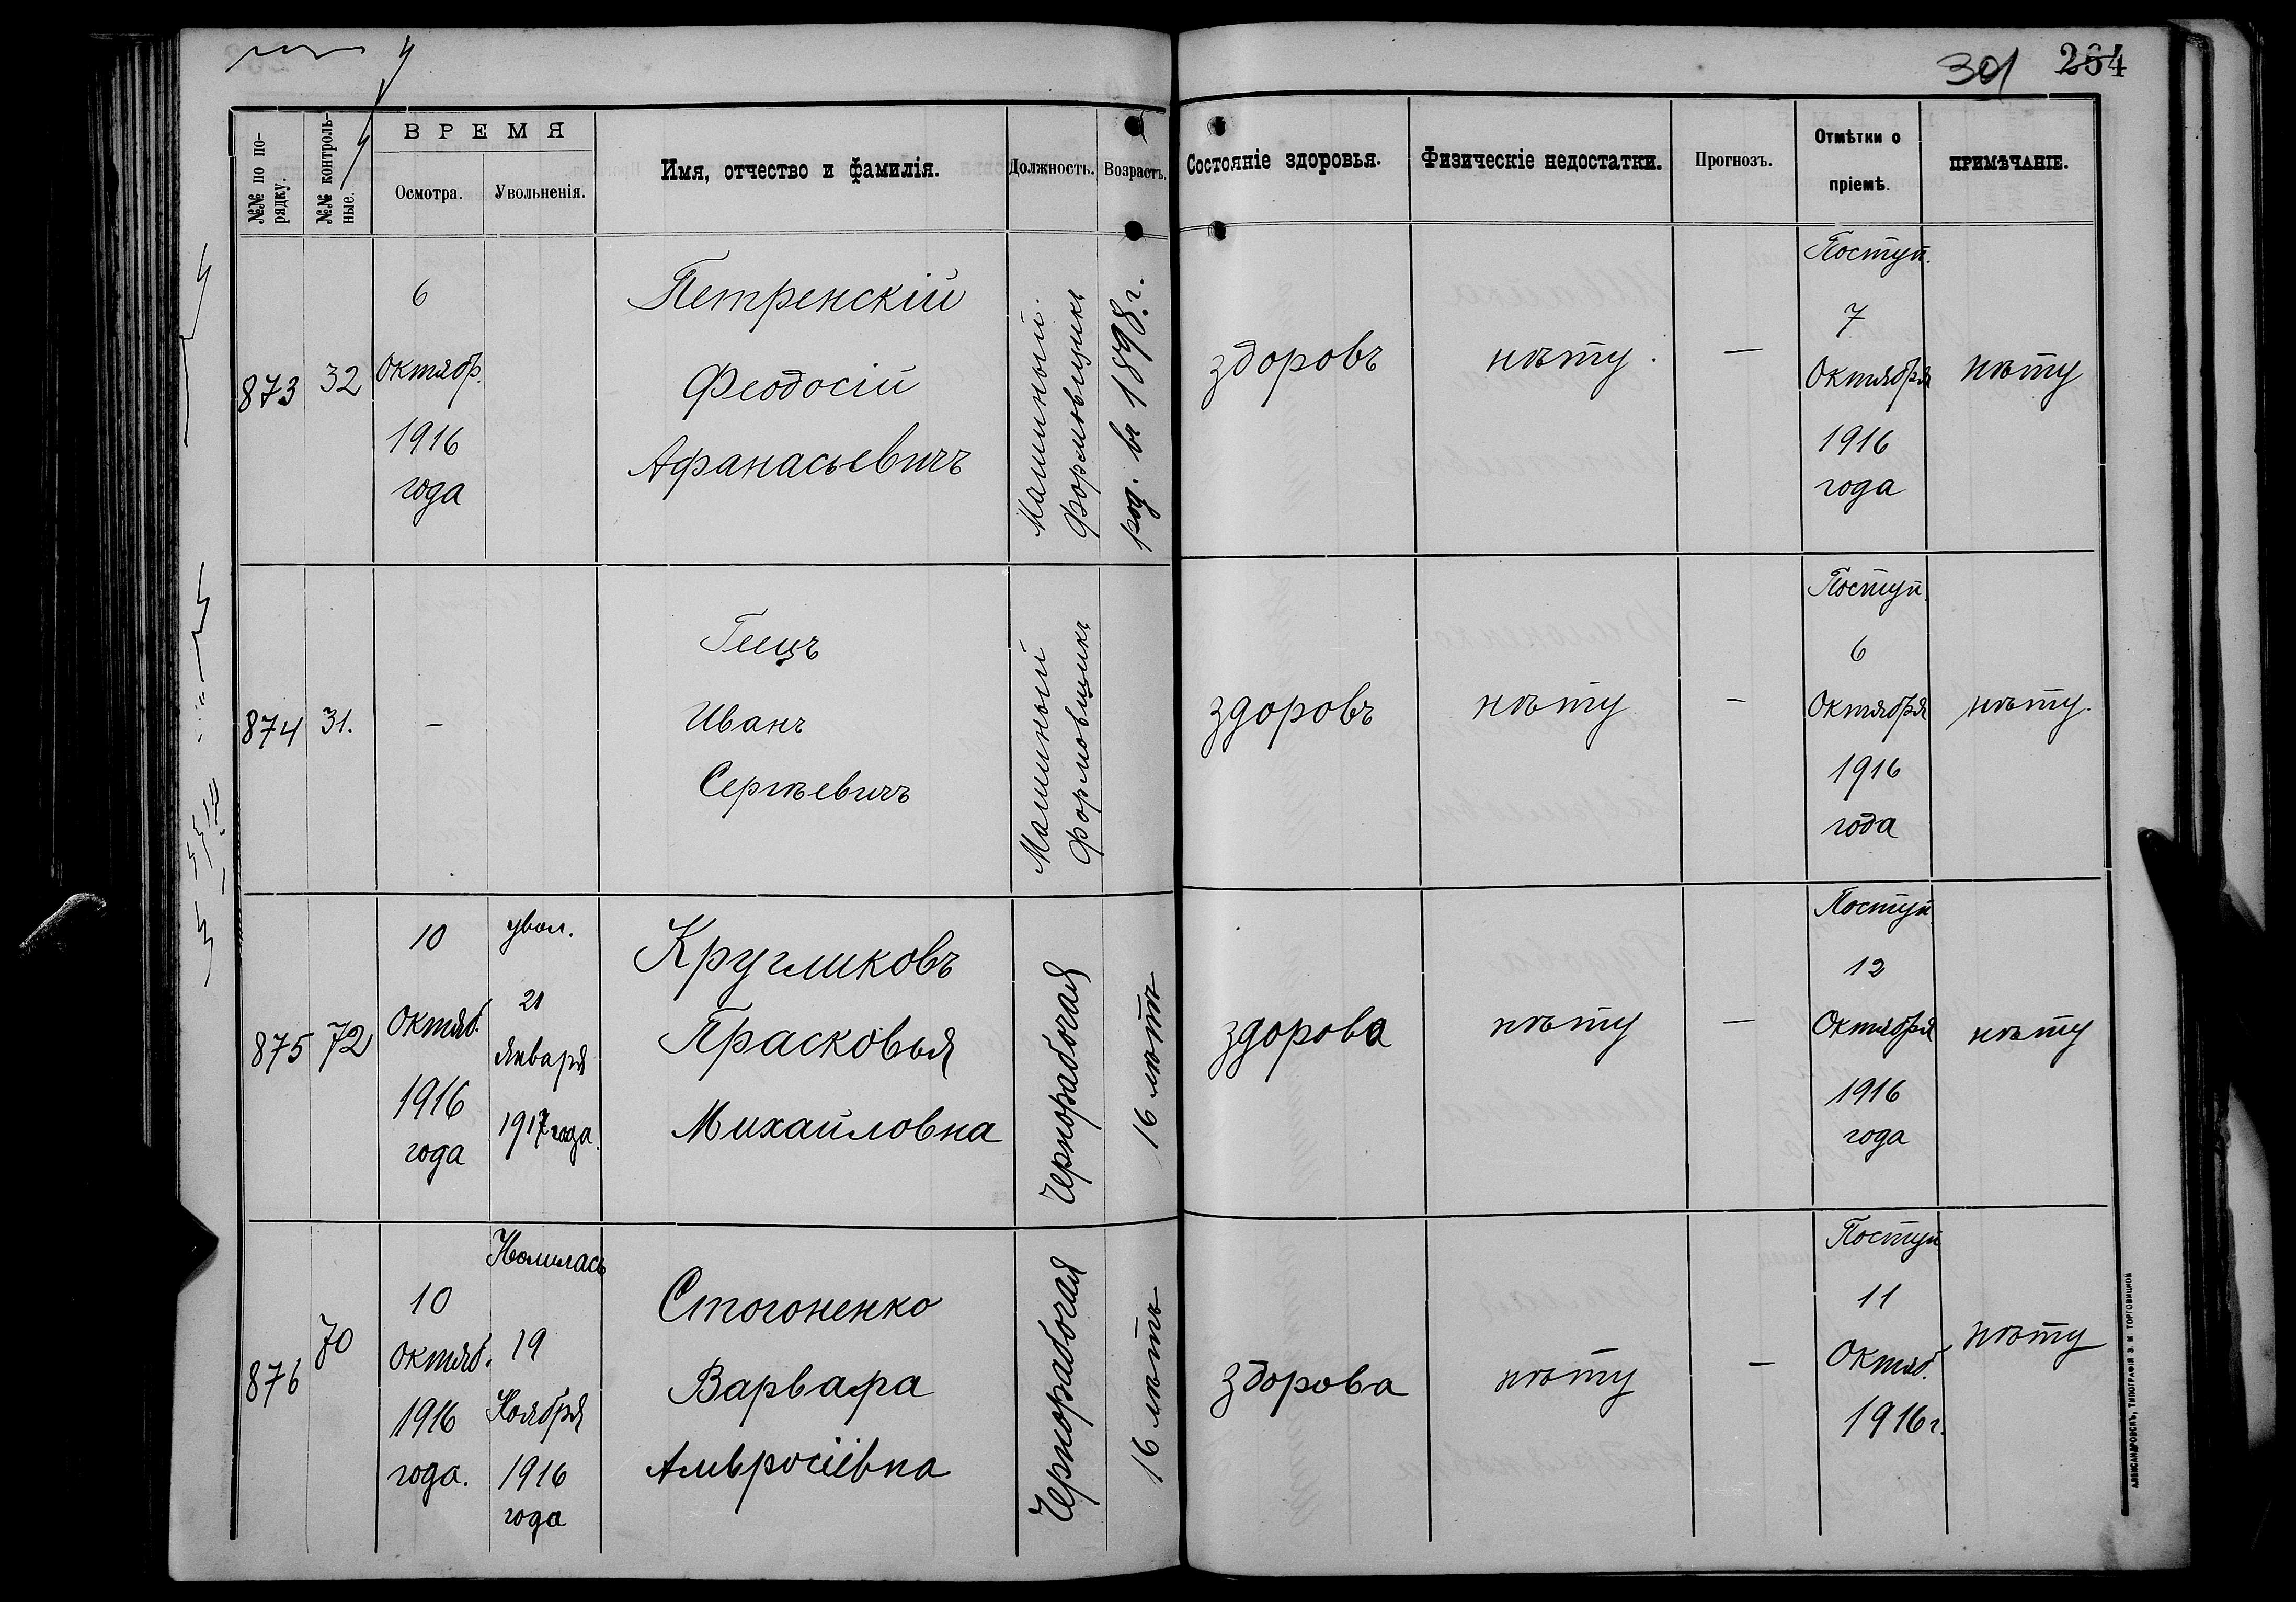 301 264
№№ по порядку.
№№ контрольные.
ВРЕМЯ
Осмотра.
Увольненія.
Имя, отчество и фамилія.
Должность.
Возрастъ.
Состояніе здоровья.
Физическіе недостатки.
Прогнозъ.
Отмѣтки о
пріемѣ.
ПРИМѢЧАНІЕ.
873
32
6
Октябр.
1916
года
Петренскій
Феодосій
Афанасьевичъ
Машиный
формовщикъ
род. въ 1898 г.
здоровъ
нѣту.
—
Поступ.
7
Октября
1916
года
нѣту
874
31.
—
Гищъ
Иванъ
Сергѣевичъ
Машиный
формовщикъ
здоровъ
нѣту
—
Поступ.
6
Октября
1916
года
нѣту.
875
72
10
Октяб.
1916
года
увол.
21
Января
1917 года.
Кругликовъ
Прасковья
Михайловна
Чернорабочая
16 лѣтъ
здорова
нѣту
—
Поступ
12
Октября
1916
года
нѣту
876
70
10
Октяб.
1916
года.
19
Ноября
1916
года
Стогоненко
Варвара
Амвросіівна
Чернорабочая
16 лѣтъ
здорова
нѣту
—
Поступ
11
Октяб.
1916 г.
нѣту
АЛЕКСАНДРОВСКЪ, ТИПОГРАФІЯ З. М. ТОРГОВИЦКОЙ